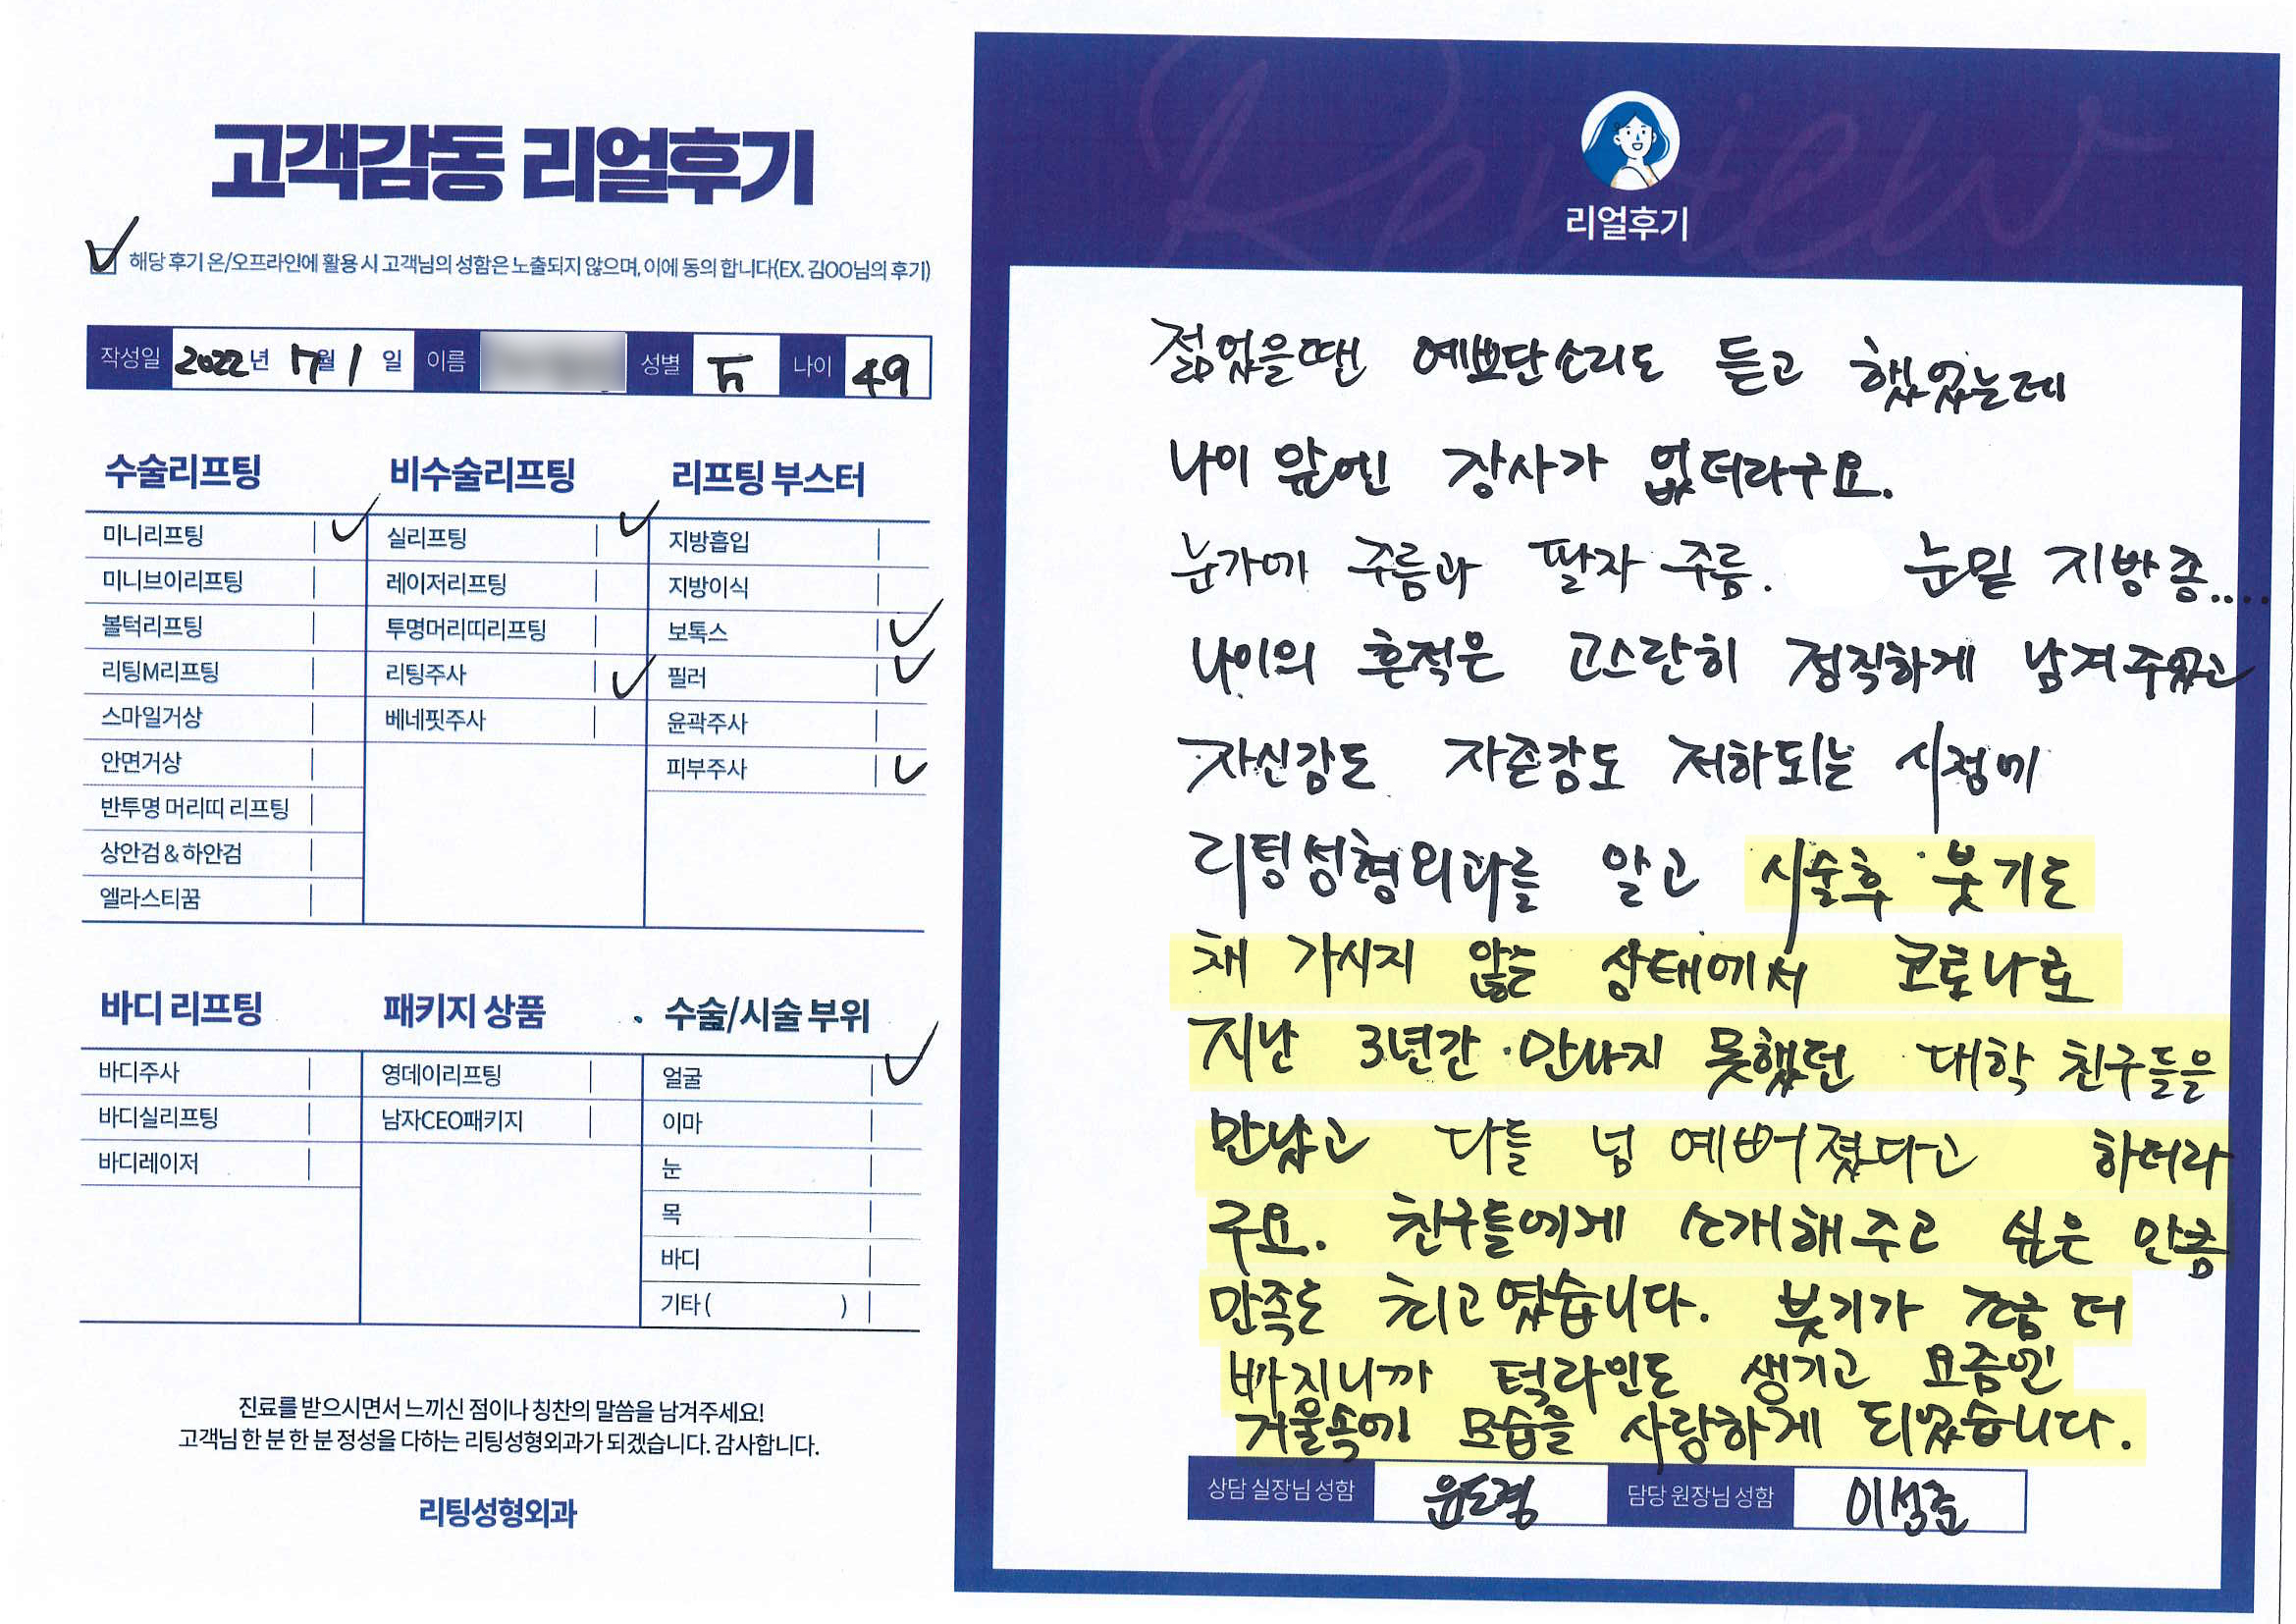 고객감동 리얼후기
해당 후기 온/오프라인에 활용 시 고객님의 성함은 노출되지 않으며, 이에 동의 합니다(EX. 김OO님의 후기)
작성일 2022년 7월 1일 이름 성별 여 나이 49
수술리프팅
미니리프팅
미니브이리프팅
볼턱리프팅
리팅M리프팅
스마일거상
안면거상
반투명 머리띠 리프팅
상안검&하안검
엘라스티꿈
비수술리프팅
실리프팅
레이저리프팅
투명머리띠리프팅
리팅주사
베네핏주사
리프팅 부스터
지방흡입
지방이식
보톡스
필러
윤곽주사
피부주사
바디 리프팅
바디주사
바디실리프팅
바디레이저
패키지 상품
영데이리프팅
남자CEO패키지
수술/시술 부위
얼굴
이마
눈
목
바디
기타 ( )
진료를 받으시면서 느끼신 점이나 칭찬의 말씀을 남겨주세요!
고객님 한 분 한 분 정성을 다하는 리팅성형외과가 되겠습니다. 감사합니다.
리팅성형외과
Review
리얼후기
젊었을땐 예쁘단소리도 듣고 했었는데
나이 앞엔 장사가 없더라구요.
눈가에 주름과 팔자 주름. 눈밑 지방층....
나이의 흔적은 고스란히 정직하게 남겨주었고
자신감도 자존감도 저하되는 시점에
리팅성형외과를 알고 시술후 붓기도
채 가시지 않은 상태에서 코로나로
지난 3년간 만나지 못했던 대학 친구들을
만났고 다들 넘 예뻐졌다고 하더라
구요. 친구들에게 소개해주고 싶은 만큼
만족도 최고였습니다. 붓기가 조금 더
빠지니까 턱라인도 생기고 요즘엔
거울속에 모습을 사랑하게 되었습니다.
상담 실장님 성함 윤도경 담당 원장님 성함 이석준